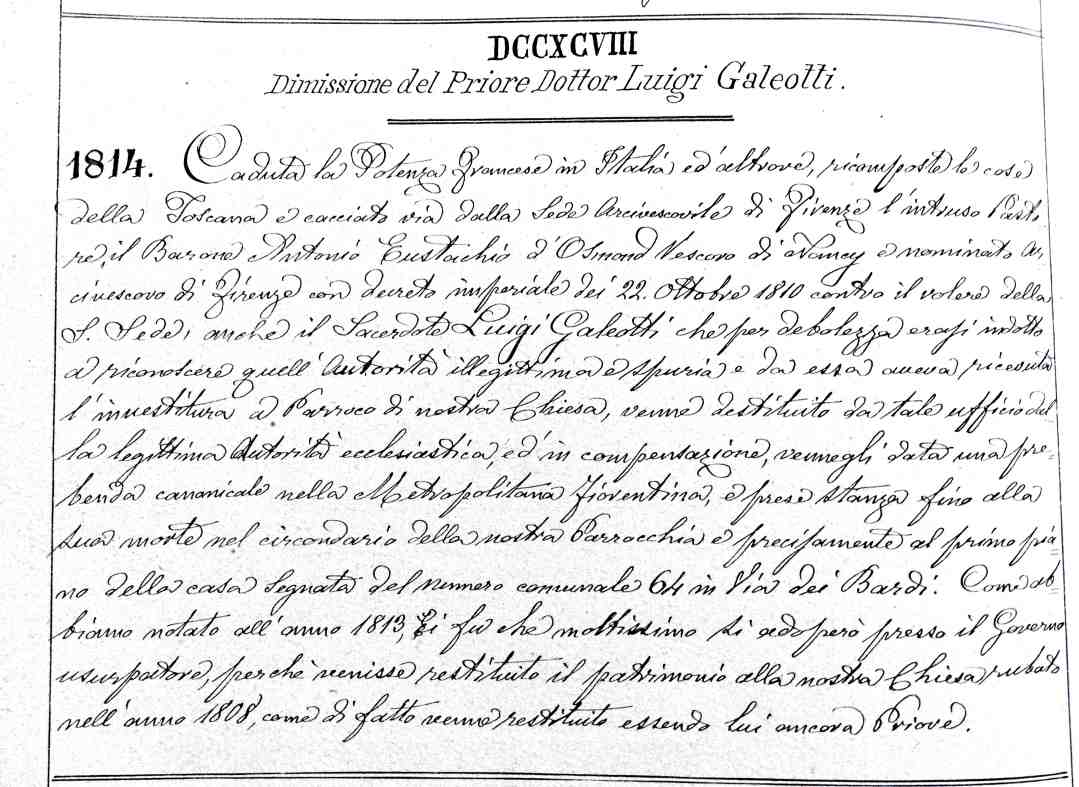 DCCXCVIII
Dimissione del Priore Dottor Luigi Galeotti.
1814. Caduta la Potenza Francese in Italia ed'altrove, ricomposte le cose
della Toscana e cacciato via dalla Sede Arcivescovile di Firenze l'intruso Pasto
re, il Barone Antonio Eustachio d'Osmond Vescovo di Nancy e nominato Ar,
civescovo di Firenze con decreto imperiale dei 22. Ottobre 1810 contro il volere della
S. Sede, anche il Sacerdote Luigi Galeotti che per debolezza erasi indotto
a riconoscere quell'Autorità illegittima e spuria e da essa aveva ricevuta
l'investitura a Parroco di nostra Chiesa, venne destituito da tale ufficio del
la legittima Autorità ecclesiastica, ed'in compensazione, vennegli data una pre=
benda canonicale nella Metropolitana Fiorentina, e prese stanza fino alla
sua morte nel circondario della nostra Parrocchia e precisamente al primo pia=
no della casa segnata del numero comunale 64 in Via dei Bardi. Come ab=
biamo notato all'anno 1813, Ei fu che moltissimo si adoperò presso il Governo
usurpatore, perchè venisse restituito il patrimonio alla nostra Chiesa rubato
nell'anno 1808, come di fatto venne restituito essendo lui ancora Priore.